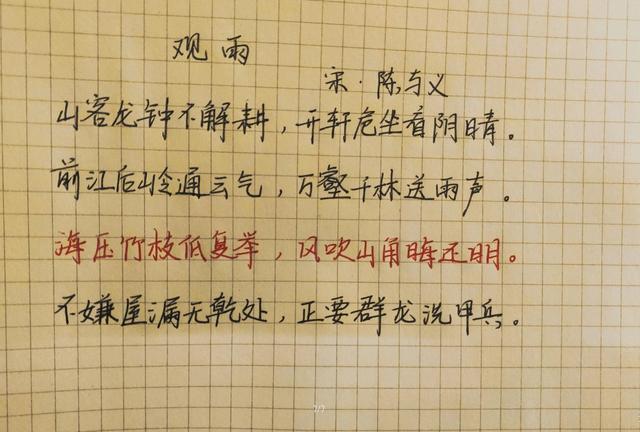 观雨
宋·陈与义
山客龙钟不解耕，开轩危坐看阴晴。
前江后岭通云气，万壑千林送雨声。
海压竹枝低复举，风吹山角晦还明。
不嫌屋漏无乾处，正要群龙洗甲兵。